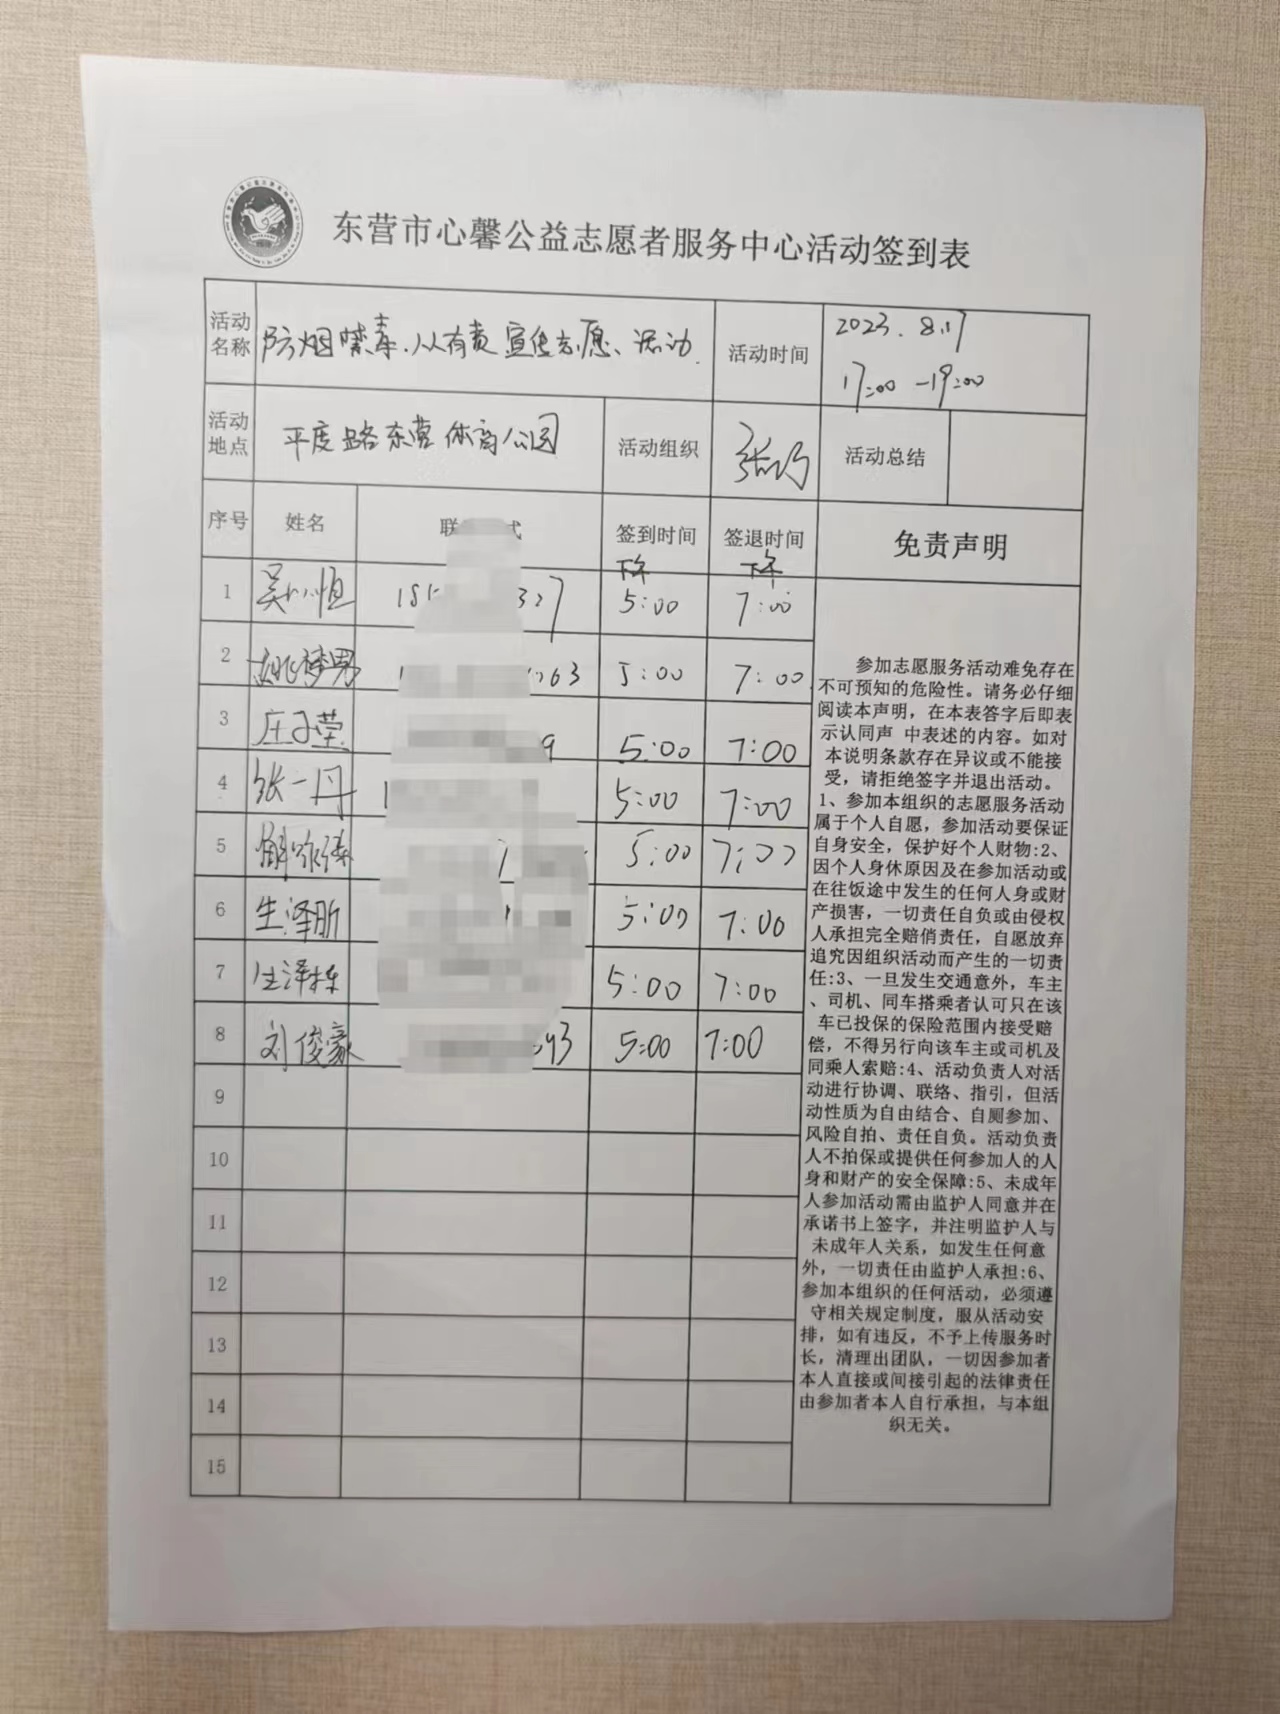 东营市心馨公益志愿者服务中心活动签到表
活动名称 防烟禁毒、从有责宣传志愿、活动 活动时间 2023.8.17
17:00-19:00
活动地点 平度路东营体育公园 活动组织 张巧 活动总结
序号 姓名 联 式 签到时间 签退时间 免责声明
下午 下午
1 吴 恒 18 327 5:00 7:00
2 姚梦男 063 5:00 7:00
3 庄子莹 9 5:00 7:00
4 张一丹 1 5:00 7:00
5 解 5:00 7:00
6 生泽昕 5:00 7:00
7 生泽栋 5:00 7:00
8 刘俊豪 393 5:00 7:00
9
10
11
12
13
14
15
参加志愿服务活动难免存在
不可预知的危险性。请务必仔细
阅读本声明，在本表答字后即表
示认同声 中表述的内容。如对
本说明条款存在异议或不能接
受，请拒绝签字并退出活动。
1、参加本组织的志愿服务活动
属于个人自愿，参加活动要保证
自身安全，保护好个人财物:2、
因个人身休原因及在参加活动或
在往饭途中发生的任何人身或财
产损害，一切责任自负或由侵权
人承担完全赔俏责任，自愿放弃
追究因组织活动而产生的一切责
任:3、一旦发生交通意外，车主
、司机、同车搭乘者认可只在该
车已投保的保险范围内接受赔
偿，不得另行向该车主或司机及
同乘人索赔:4、活动负责人对活
动进行协调、联络、指引，但活
动性质为自由结合、自厕参加、
风险自拍、责任自负。活动负责
人不拍保或提供任何参加人的人
身和财产的安全保障:5、未成年
人参加活动需由监护人同意并在
承诺书上签字，并注明监护人与
未成年人关系，如发生任何意
外，一切责任由监护人承担:6、
参加本组织的任何活动，必须遵
守相关规定制度，服从活动安
排，如有违反，不予上传服务时
长，清理出团队，一切因参加者
本人直接或间接引起的法律责任
由参加者本人自行承担，与本组
织无关。